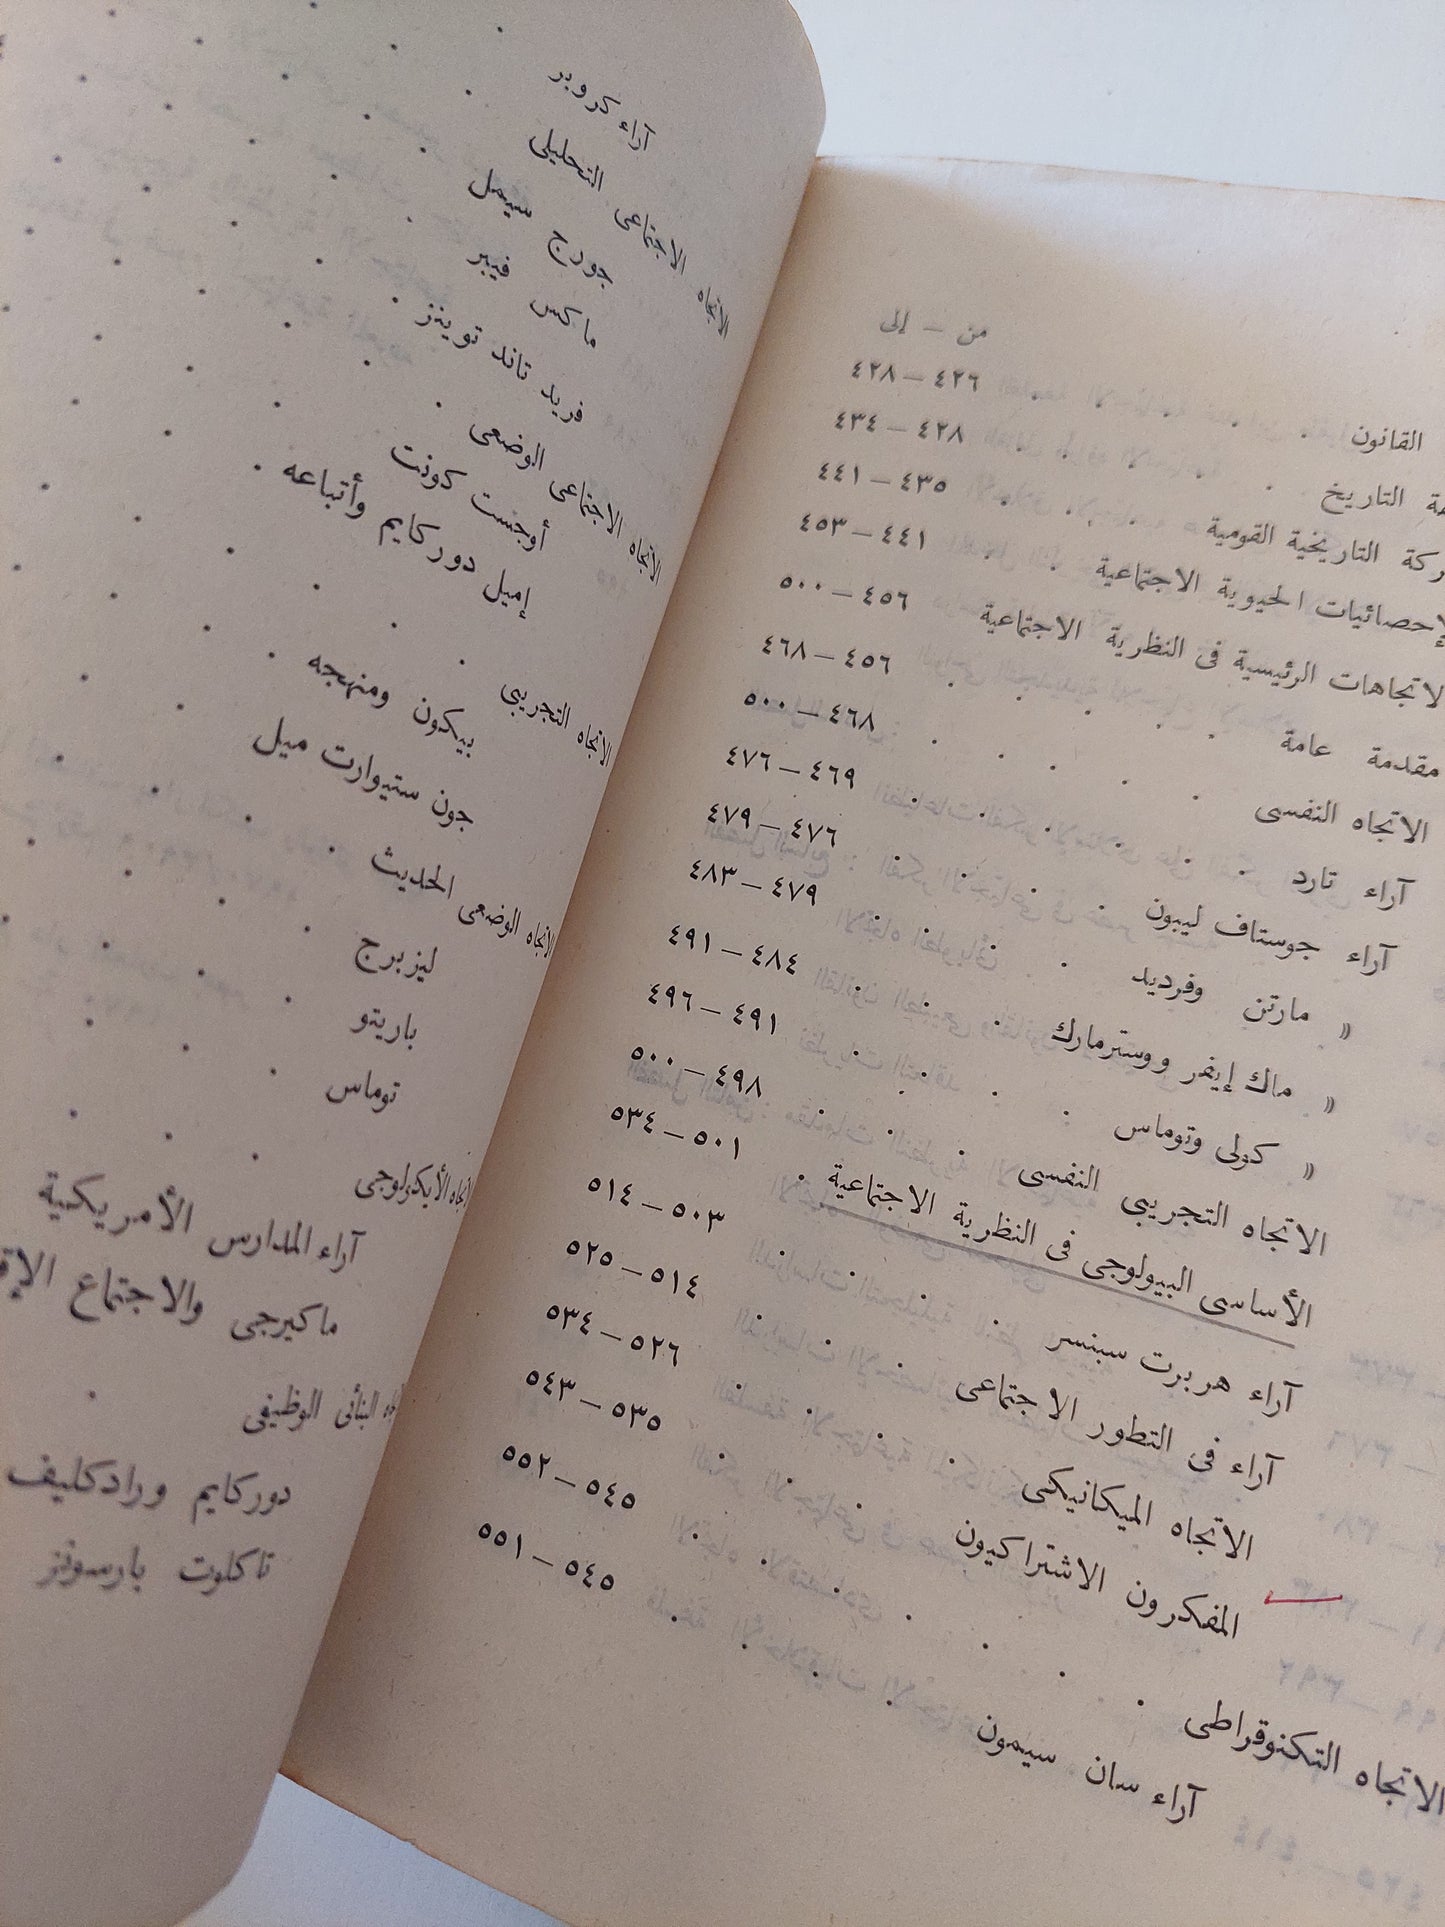 من — إلى
القانون . . . ٤٢٦ — ٤٢٨
التاريخ . . . ٤٢٨ — ٤٣٤
التاريخية القومية . . . ٤٣٥ — ٤٤١
الإحصائيات الحيوية الاجتماعية . . ٤٤١ — ٤٥٣
الاتجاهات الرئيسية فى النظرية الاجتماعية ٤٥٦ — ٥٠٠
مقدمة عامة . . . . . ٤٥٦ — ٤٦٨
الاتجاه النفسى . . . . . ٤٦٨ — ٥٠٠
آراء تارد . . . . . ٤٦٩ — ٤٧٦
آراء جوستاف ليبون . . . . ٤٧٦ — ٤٧٩
» مارتن وفرديد . . . . ٤٧٩ — ٤٨٣
» ماك إيفر ووسترمارك . . . ٤٨٤ — ٤٩١
» كولى وتوماس . . . . ٤٩١ — ٤٩٦
الاتجاه التجريبى النفسى . . . ٤٩٨ — ٥٠٠
الأساسى البيولوجى فى النظرية الاجتماعية . ٥٠١ — ٥٣٤
آراء هربرت سبنسر . . . . ٥٠٣ — ٥١٤
آراء فى التطور الاجتماعى . . . ٥١٤ — ٥٢٥
الاتجاه الميكانيكى . . . . ٥٢٦ — ٥٣٤
المفكرون الاشتراكيون . . . . ٥٣٥ — ٥٤٣
الاتجاه التكنوقراطى . . . . . ٥٤٥ — ٥٥٢
آراء سان سيمون . . . . ٥٤٥ — ٥٥١
آراء كروبر
الاتجاه الاجتماعى التحليلى
جورج سيمل
ماكس فيبر
فريد ناند توينز
الاتجاه الاجتماعى الوضعى
أوجست كونت
إميل دوركايم وأتباعه
الاتجاه التجريبى
بيكون ومنهجه
جون ستيوارت ميل
الاتجاه الوضعى الحديث
ليزبرج
باريتو
توماس
اتجاه الأيكولوجى
آراء المدارس الأمريكية
ماكيرجى والاجتماع
البنائى الوظيفى
دوركايم ورادكليف
تاكلوت بارسونز